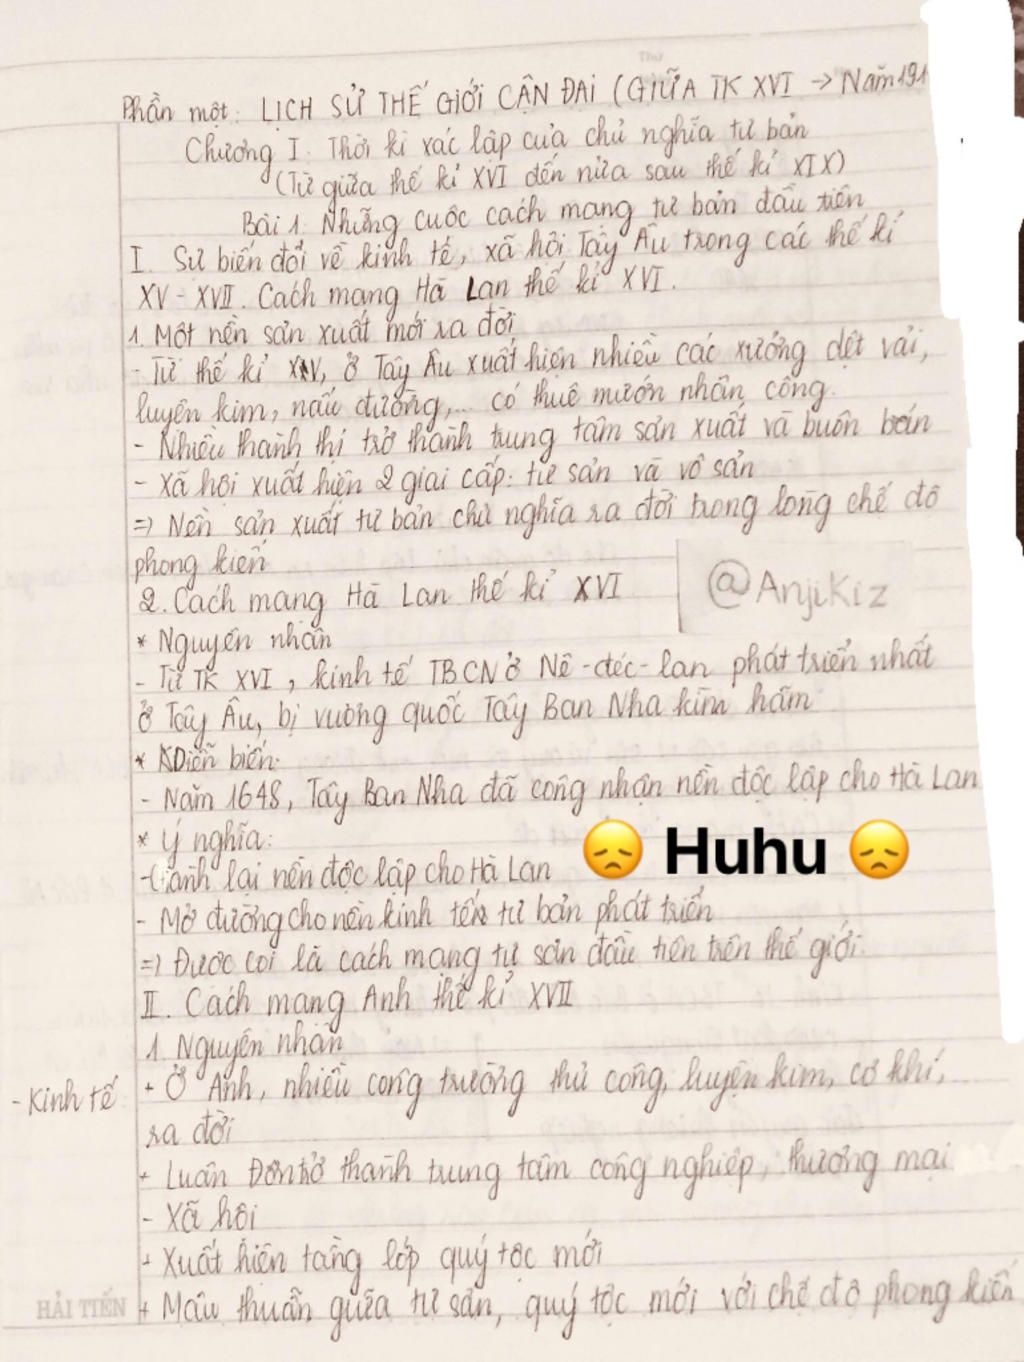 Phần một: LỊCH SỬ THẾ GIỚI CẬN ĐẠI (GIỮA TK XVI → Năm 191
Chương I: Thời kì xác lập của chủ nghĩa tư bản
(Từ giữa thế kỉ XVI đến nửa sau thế kỉ XIX)
Bài 1: Những cuộc cách mạng tư bản đầu tiên
I. Sự biến đổi về kinh tế, xã hội Tây Âu trong các thế kỉ
XV - XVII. Cách mạng Hà Lan thế kỉ XVI.
1. Một nền sản xuất mới ra đời
- Từ thế kỉ XV, ở Tây Âu xuất hiện nhiều các xưởng dệt vải,
luyện kim, nấu đường,... có thuê mướn nhân công.
- Nhiều thành thị trở thành trung tâm sản xuất và buôn bán
- Xã hội xuất hiện 2 giai cấp: tư sản và vô sản
=> Nền sản xuất tư bản chủ nghĩa ra đời trong lòng chế độ
phong kiến
2. Cách mạng Hà Lan thế kỉ XVI
@AnjiKiz
* Nguyên nhân
- Từ TK XVI, kinh tế TBCN ở Nê-đéc-lan phát triển nhất
ở Tây Âu, bị vương quốc Tây Ban Nha kìm hãm
* Diễn biến:
- Năm 1648, Tây Ban Nha đã công nhận nền độc lập cho Hà Lan
* Ý nghĩa:
😞 Huhu 😞
- Giành lại nền độc lập cho Hà Lan
- Mở đường cho nền kinh tế tư bản phát triển
=> Được coi là cách mạng tư sản đầu tiên trên thế giới.
II. Cách mạng Anh thế kỉ XVII
1. Nguyên nhân
- Kinh tế
+ Ở Anh, nhiều công trường thủ công, luyện kim, cơ khí,
ra đời
+ Luân Đôn trở thành trung tâm công nghiệp, thương mại
- Xã hội
+ Xuất hiện tầng lớp quý tộc mới
+ Mâu thuẫn giữa tư sản, quý tộc mới với chế độ phong kiến
HẢI TIẾN